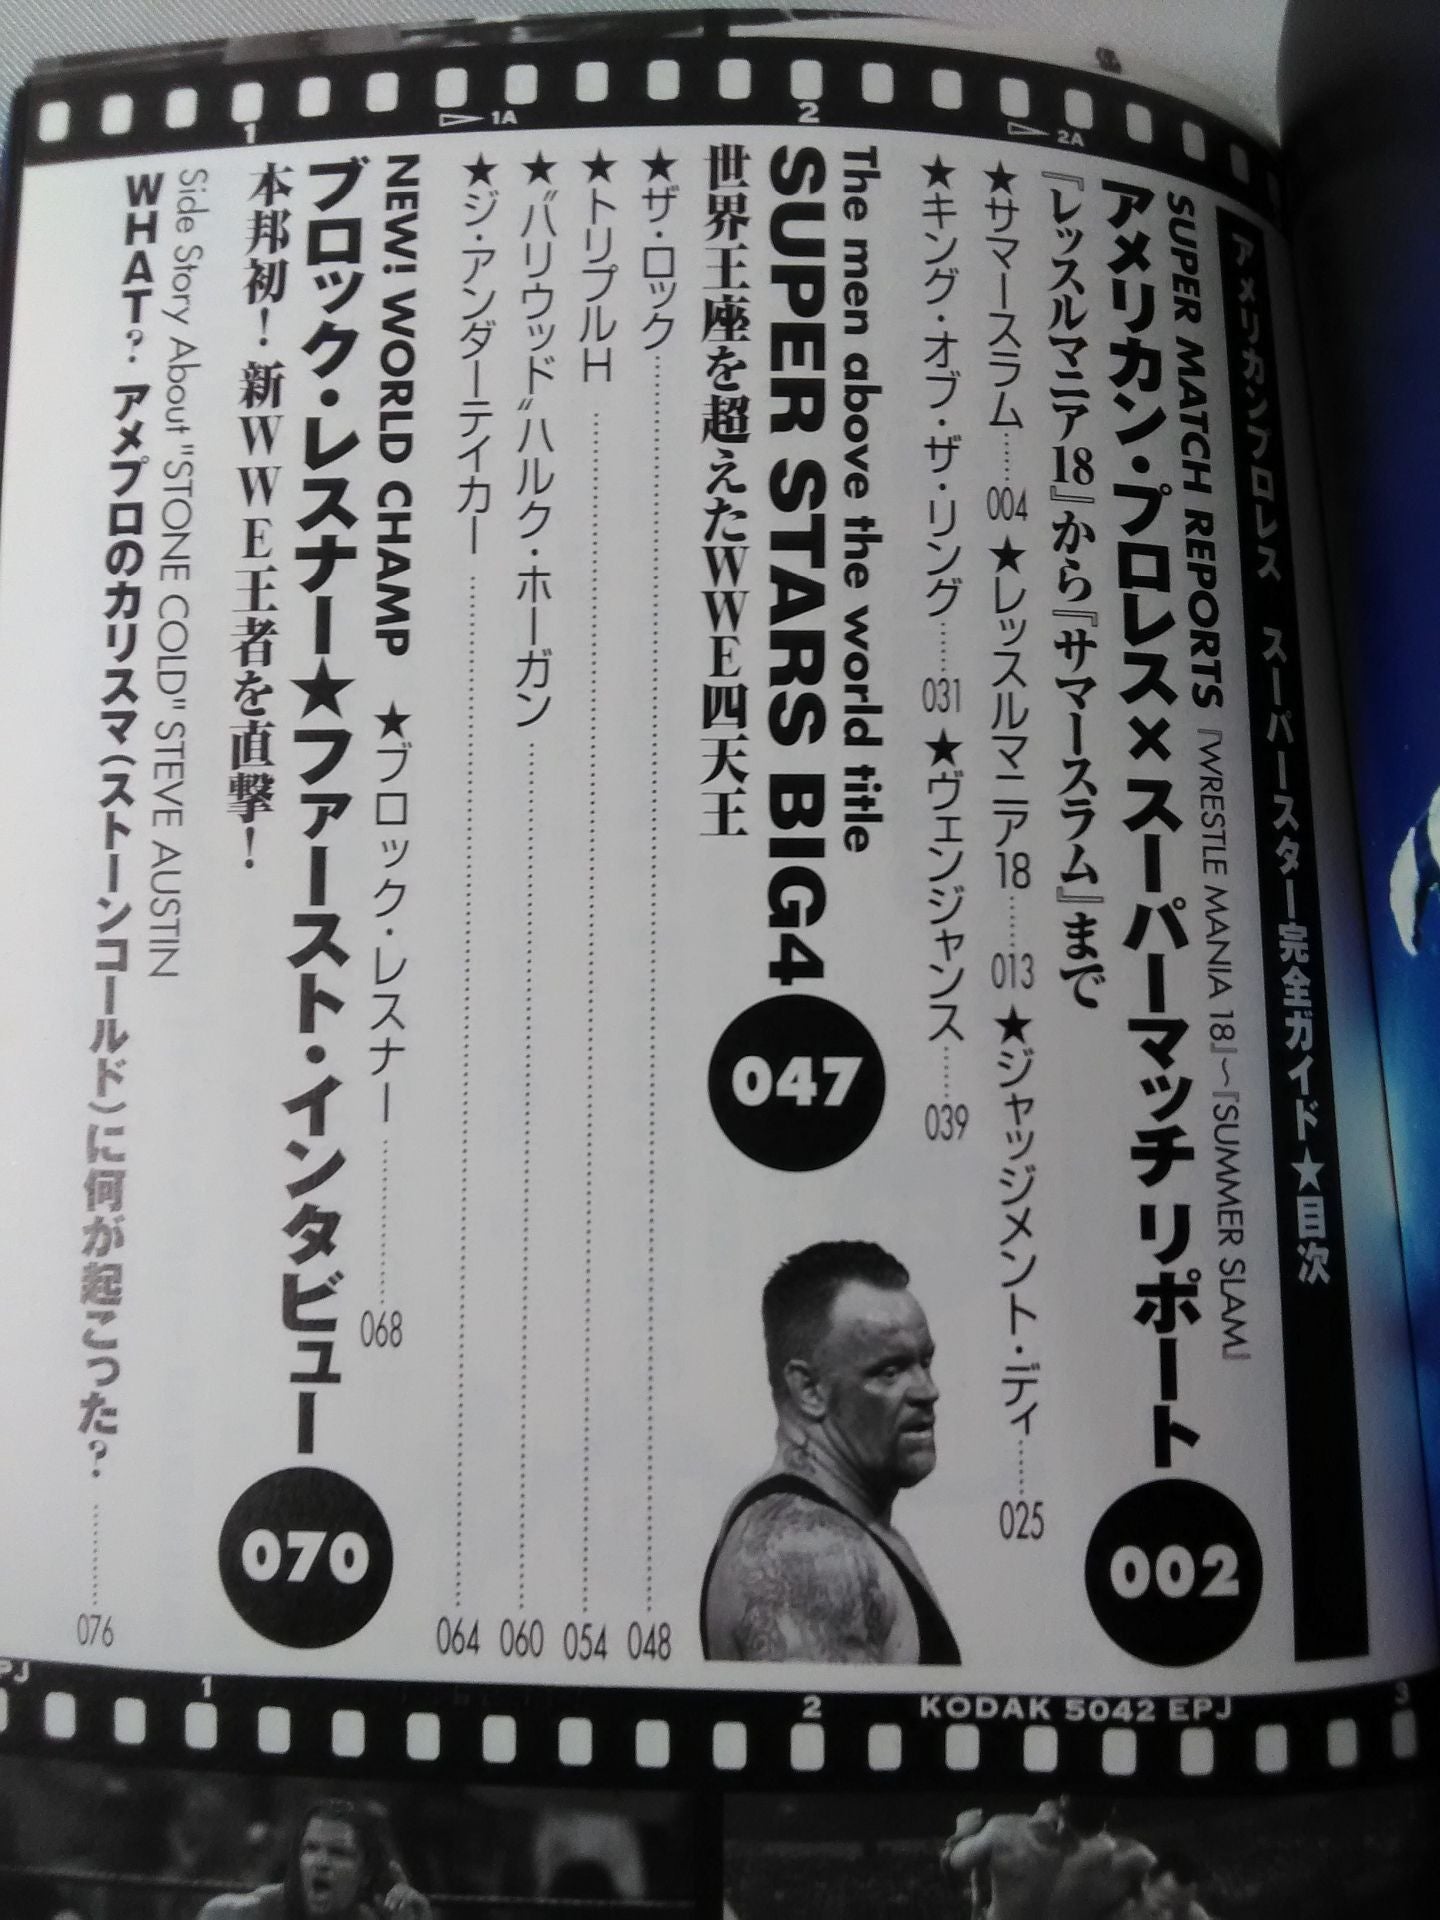 アメリカンプロレス スーパースター完全ガイド★目次
SUPER MATCH REPORTS 『WRESTLE MANIA 18』〜『SUMMER SLAM』
アメリカン・プロレス×スーパーマッチリポート 002
『レッスルマニア18』から『サマースラム』まで
★サマースラム……004 ★レッスルマニア18……013 ★ジャッジメント・デイ……025
★キング・オブ・ザ・リング……031 ★ヴェンジャンス……039
The men above the world title
SUPER STARS BIG4 047
世界王座を超えたWWE四天王
★ザ・ロック……048
★トリプルH……054
★"ハリウッド"ハルク・ホーガン……060
★ジ・アンダーテイカー……064
NEW! WORLD CHAMP ★ブロック・レスナー……068
ブロック・レスナー★ファースト・インタビュー 070
本邦初！新WWE王者を直撃！
Side Story About "STONE COLD" STEVE AUSTIN
WHAT？アメプロのカリスマ（ストーンコールド）に何が起こった？……076
1
1A
2
2A
1
2
KODAK 5042 EPJ
3